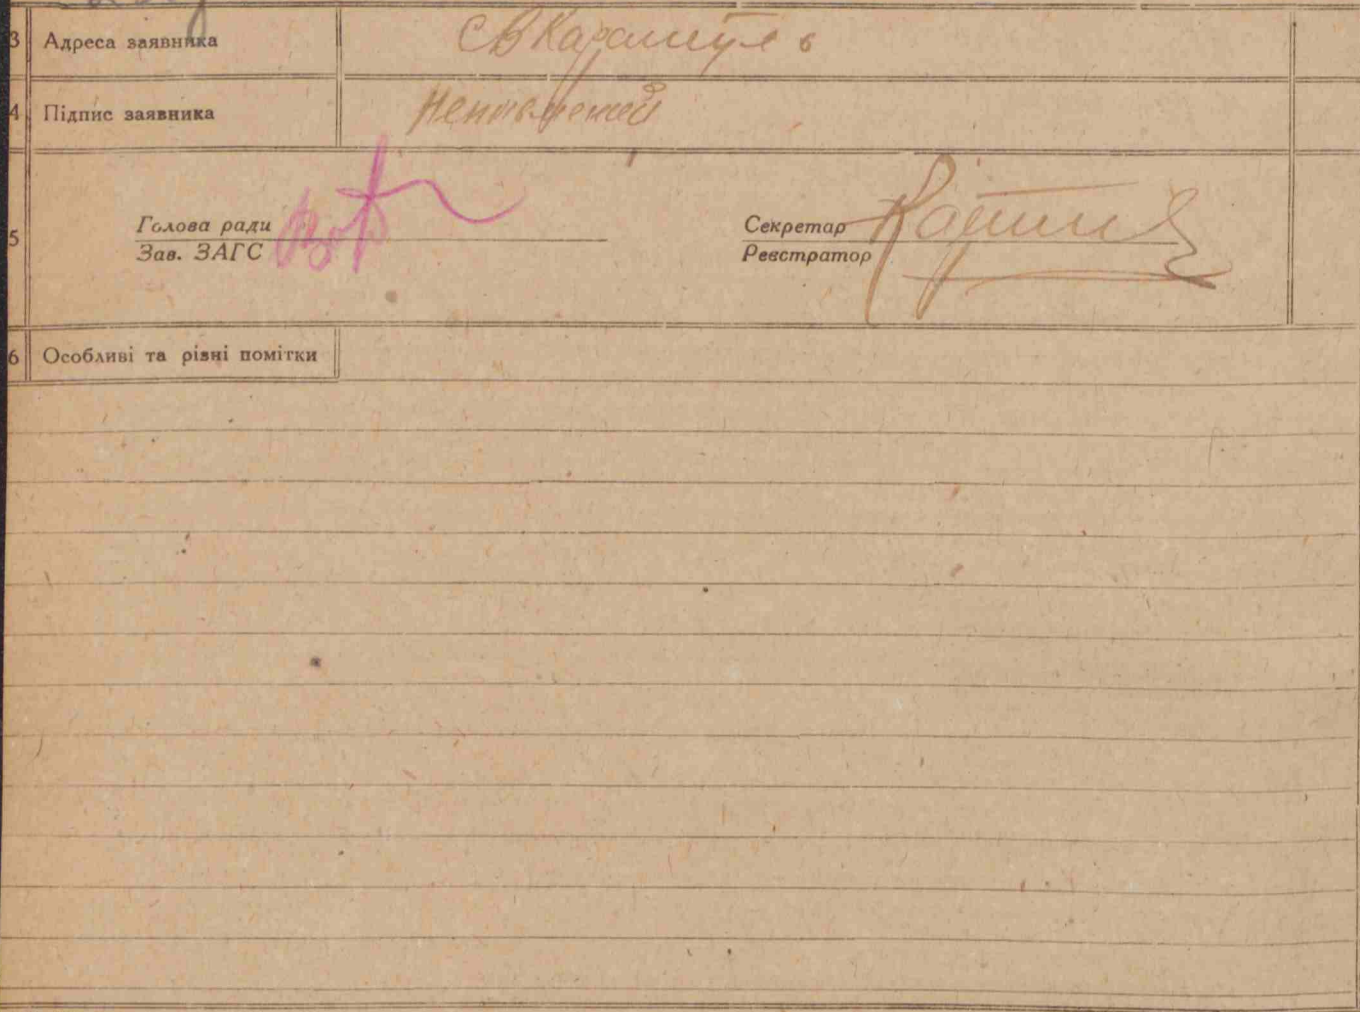 3 Адреса заявника С В Карашуль
4 Підпис заявника Неписьмений
5 Голова ради
Зав. ЗАГС
Секретар
Реєстратор
6 Особливі та різні помітки